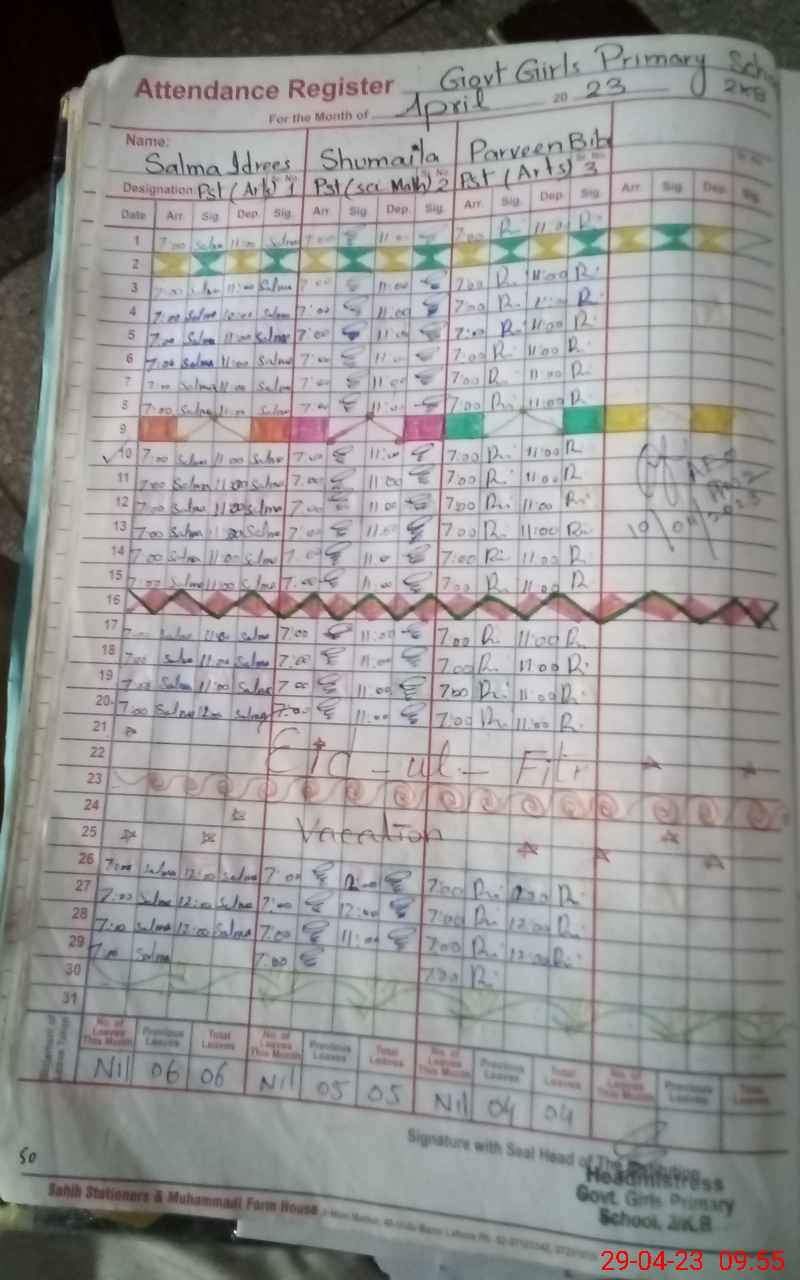 Attendance Register Govt Girls Primary Scho
For the Month of April 20 23 2KB
Name: Salma Idrees Shumaila Parveen Bibi
Designation: Pst (Arts) Sr. No. 1 Pst (sci Math) 2 Pst (Arts) Sr. No. 3
Date Arr. Sig. Dep. Sig. Arr. Sig. Dep. Sig. Arr. Sig. Dep. Sig. Arr. Sig. Dep. Sig.
1 7:00 Salma 11:00 Salma 7:00 11:00 7:00 11:00
2
3 7:00 Salma 11:00 Salma 7:00 11:00 7:00 11:00
4 7:00 Salma Salma 7:00 11:00 7:00
5 7:00 Salma 11:00 Salma 7:00 11:00 7:00 11:00
6 7:00 Salma 11:00 Salma 7:00 11:00 7:00 11:00
7 7:00 Salma 11:00 Salma 7:00 11:00 7:00 11:00
8 7:00 Salma 11:00 7:00 11:00 7:00 11:00
9
10 7:00 Salma 11:00 Salma 7:00 11:00 7:00 11:00
11 7:00 Salma 11:00 Salma 7:00 11:00 7:00 11:00
12 7:00 Salma 11:00 Salma 7:00 11:00 7:00 11:00
13 7:00 Salma 11:00 Salma 7:00 11:00 7:00 11:00
14 7:00 Salma 11:00 Salma 7:00 11:00 7:00 11:00
15 7:00 Salma 11:00 Salma 7:00 11:00 7:00 11:00
16
17 7:00 Salma 11:00 Salma 7:00 11:00 7:00 11:00
18 7:00 Salma 11:00 Salma 7:00 11:00 7:00 11:00
19 7:00 Salma 11:00 Salma 7:00 11:00 7:00 11:00
20 7:00 Salma 12:00 Salma 7:00 11:00 7:00 11:00
21
22 Eid - ul - Fitr
23
24
25 Vacation
26 7:00 Salma 12:00 Salma 7:00 12:00 7:00
27 7:00 Salma 12:00 Salma 7:00 12:00 7:00 12:00
28 7:00 Salma 12:00 Salma 7:00 11:00 7:00 12:00
29 7:00 Salma 7:00 7:00
30
31
No. of Leaves This Month Previous Leaves Total Leaves No. of Leaves This Month Previous Leaves Total Leaves No. of Leaves This Month Previous Leaves Total Leaves No. of Leaves This Month Previous Leaves Total Leaves
Nil 06 06 Nil 05 05 Nil 04 04
Signature with Seal Head of The Institution
Headmistress
Govt. Girls Primary
School, 2K.B
50
Sahib Stationers & Muhammadi Form House
29-04-23 09:55